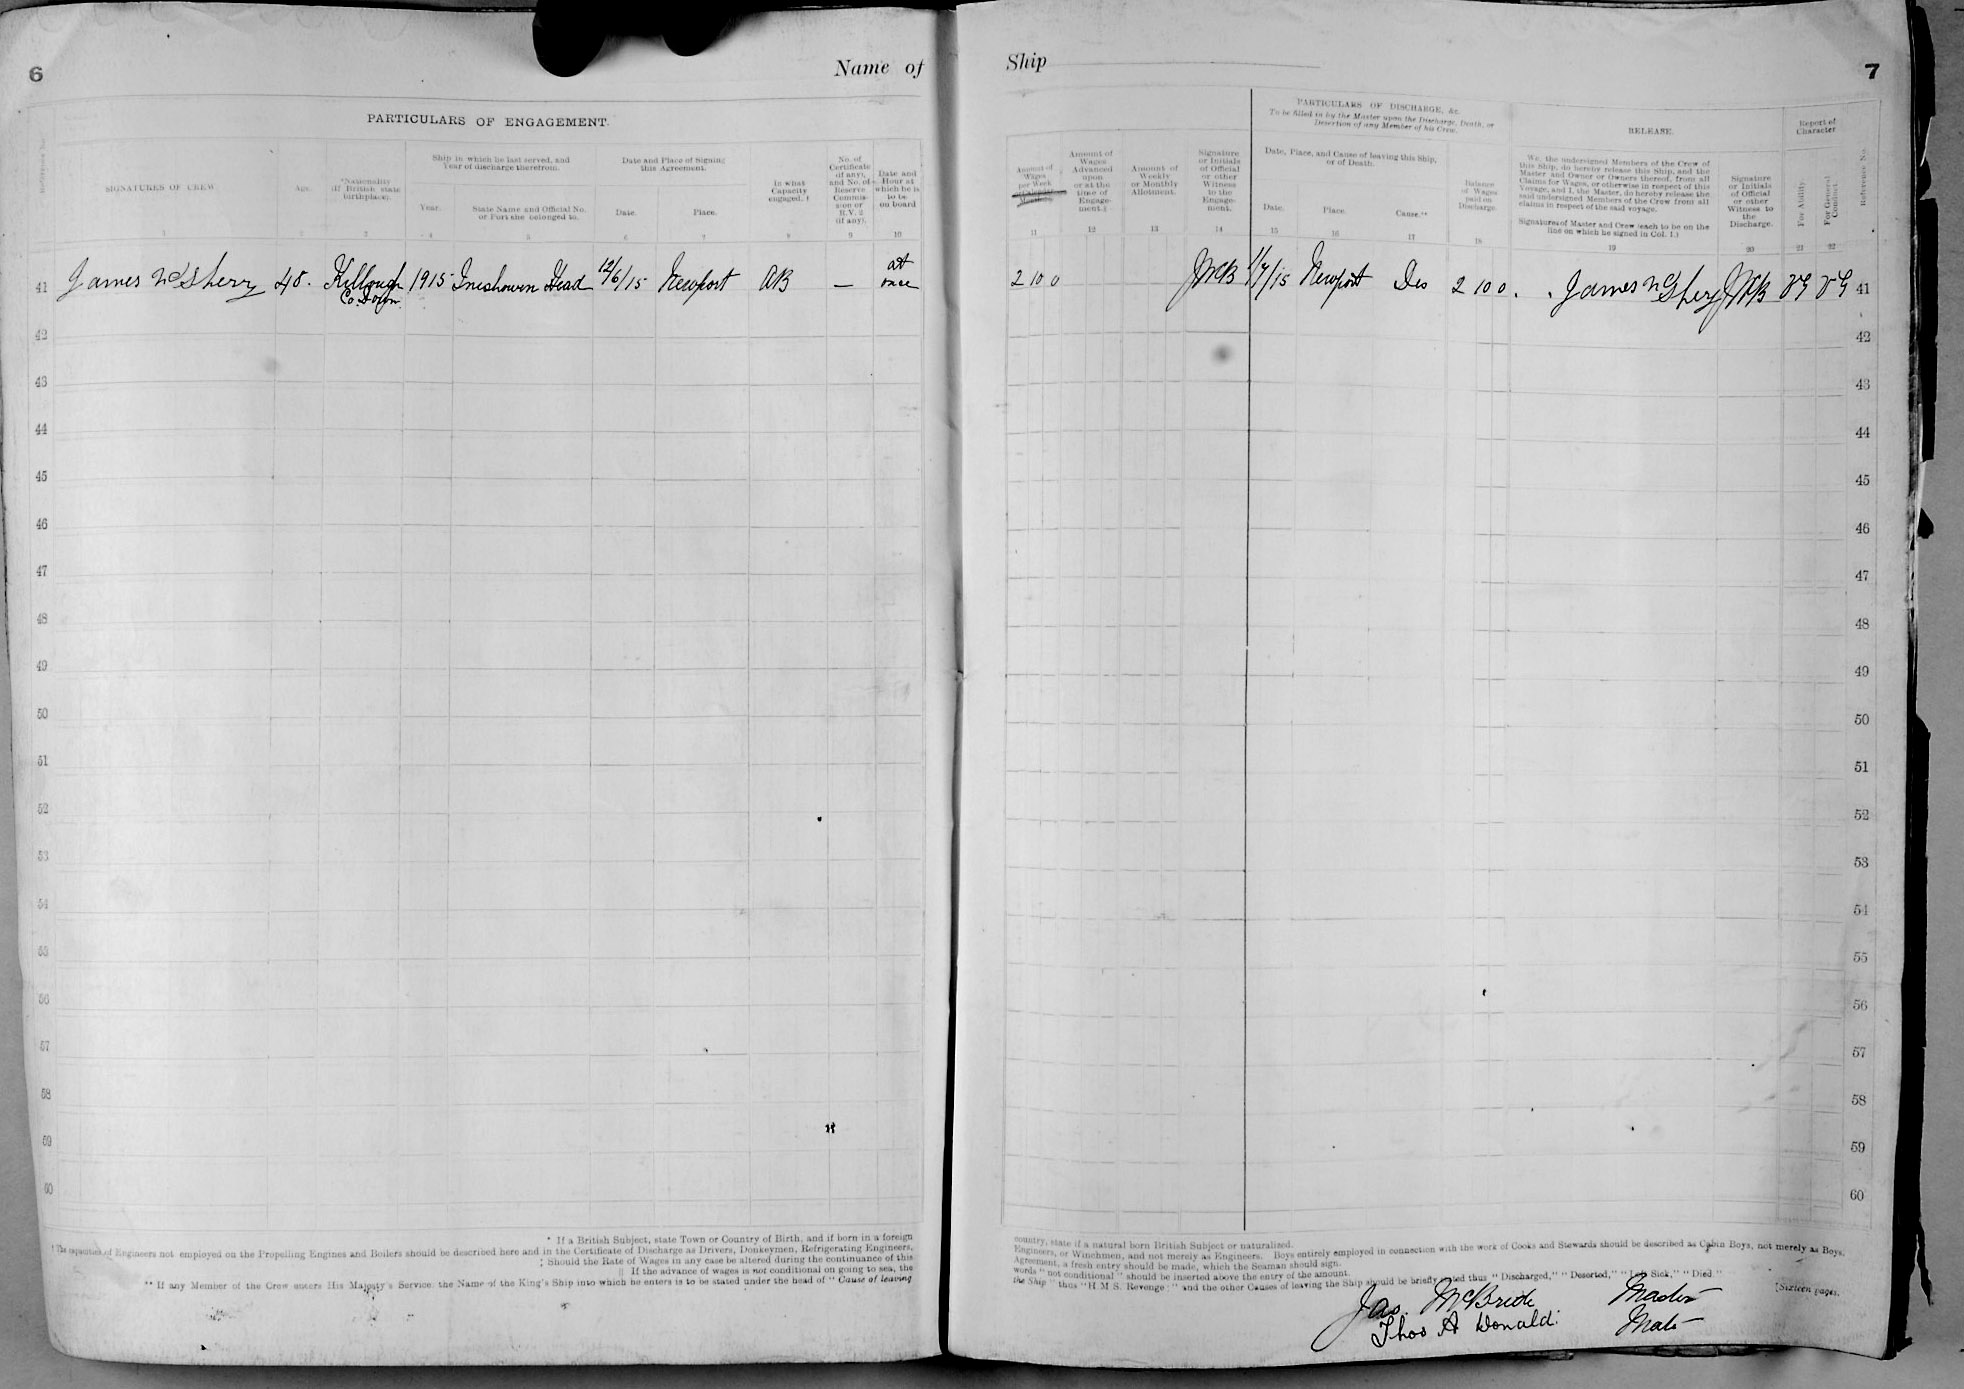 6
Name of
PARTICULARS OF ENGAGEMENT.
SIGNATURES OF CREW
Age.
*Nationality
(If British state
birthplace).
Ship in which he last served, and
Year of discharge therefrom.
Year.
State Name and Official No.
or Port she belonged to.
Date and Place of Signing
this Agreement.
Date.
Place.
In what
Capacity
engaged. †
No. of
Certificate
(if any),
and No. of
Reserve
Commis-
sion or
R.V. 2
(if any).
Date and
Hour at
which he is
to be
on board
1 2 3 4 5 6 7 8 9 10
41 James McSherry 48. Killough 1915 Inishowen Head 12/6/15 Newport AB — at once
Co. Down
42
43
44
45
46
47
48
49
50
51
52
53
54
55
56
57
58
59
60
* If a British Subject, state Town or Country of Birth, and if born in a foreign
† The capacities of Engineers not employed on the Propelling Engines and Boilers should be described here and in the Certificate of Discharge as Drivers, Donkeymen, Refrigerating Engineers,
‡ Should the Rate of Wages in any case be altered during the continuance of this
|| If the advance of wages is not conditional on going to sea, the
** If any Member of the Crew enters His Majesty's Service, the Name of the King's Ship into which he enters is to be stated under the head of "Cause of leaving
Ship
7
Amount of
Wages
per Week
or Calendar
Month.
Amount of
Wages
Advanced
upon
or at the
time of
Engage-
ment.‡
Amount of
Weekly
or Monthly
Allotment.
Signature
or Initials
of Official
or other
Witness
to the
Engage-
ment.
PARTICULARS OF DISCHARGE, &c.
To be filled in by the Master upon the Discharge, Death, or
Desertion of any Member of his Crew.
Date, Place, and Cause of leaving this Ship,
or of Death.
Date.
Place.
Cause.**
Balance
of Wages
paid on
Discharge.
RELEASE.
We, the undersigned Members of the Crew of
this Ship, do hereby release this Ship, and the
Master and Owner or Owners thereof, from all
Claims for Wages, or otherwise in respect of this
Voyage, and I, the Master, do hereby release the
said undersigned Members of the Crew from all
claims in respect of the said voyage.
Signatures of Master and Crew (each to be on the
line on which he signed in Col. 1.)
Signature
or Initials
of Official
or other
Witness to
the
Discharge.
Report of
Character
For Ability
For General
Conduct.
Reference No.
11 12 13 14 15 16 17 18 19 20 21 22
2 10 0 JMcB 1/7/15 Newport Dis 2 10 0. James McSherry JMcB VG VG 41
42
43
44
45
46
47
48
49
50
51
52
53
54
55
56
57
58
59
60
country, state if a natural born British Subject or naturalized.
Engineers, or Winchmen, and not merely as Engineers. Boys entirely employed in connection with the work of Cooks and Stewards should be described as Cabin Boys, not merely as Boys.
Agreement, a fresh entry should be made, which the Seaman should sign.
words "not conditional" should be inserted above the entry of the amount.
the Ship" thus "H.M.S. Revenge;" and the other Causes of leaving the Ship should be briefly stated thus "Discharged," "Deserted," "Left Sick," "Died."
[Sixteen pages.
Jas. McBride Master
Thos A Donald. Mate